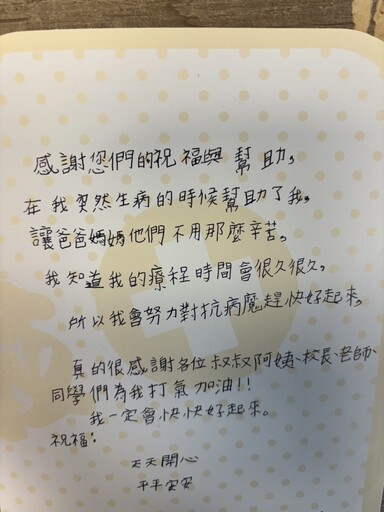 感謝您們的祝福與幫助,
在我突然生病的時候幫助了我,
讓爸爸媽媽他們不用那麼辛苦,
我知道我的療程時間會很久很久,
所以我會努力對抗病魔趕快好起來,
真的很感謝各位叔叔阿姨、校長、老師、
同學們為我打氣加油!!
我一定會快快好起來。
祝福:
天天開心
平平安安